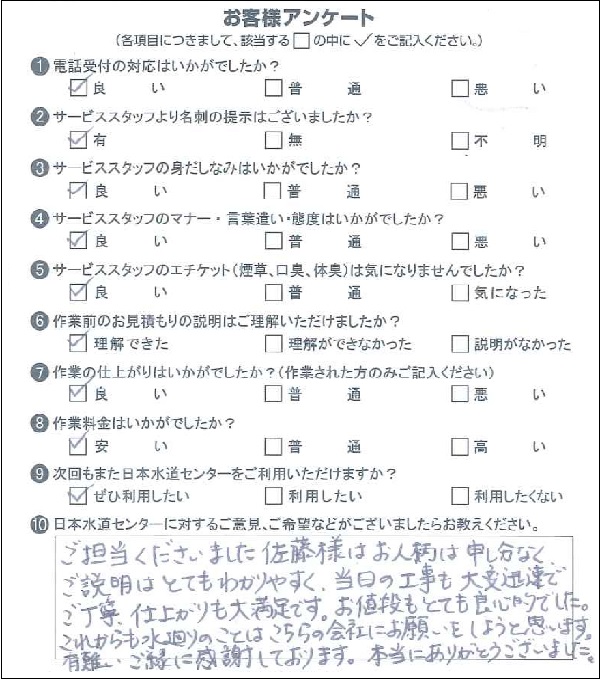 お客様アンケート
(各項目につきまして、該当する□の中に✓をご記入ください。)
1 電話受付の対応はいかがでしたか?
☑良い □普通 □悪い
2 サービススタッフより名刺の提示はございましたか?
☑有 □無 □不明
3 サービススタッフの身だしなみはいかがでしたか?
☑良い □普通 □悪い
4 サービススタッフのマナー・言葉遣い・態度はいかがでしたか?
☑良い □普通 □悪い
5 サービススタッフのエチケット(煙草、口臭、体臭)は気になりませんでたか?
☑良い □普通 □気になった
6 作業前のお見積もりの説明はご理解いただけましたか?
☑理解できた □理解ができなかった □説明がなかった
7 作業の仕上がりはいかがでしたか?(作業された方のみご記入ください)
☑良い □普通 □悪い
8 作業料金はいかがでしたか?
☑安い □普通 □高い
9 次回もまた日本水道センターをご利用いただけますか?
☑ぜひ利用したい □利用したい □利用したくない
10 日本水道センターに対するご意見、ご希望などがございましたらお教えください。
ご担当くださいました佐藤様はお人柄は申し分なく
ご説明はとてもわかりやすく、当日の工事も大変迅速で
ご丁寧、仕上がりも大満足です。お値段もとても良心的でした。
これからも水廻りのことはこちらの会社にお願いをしようと思います。
有難いご縁に感謝しております。本当にありがとうございました。